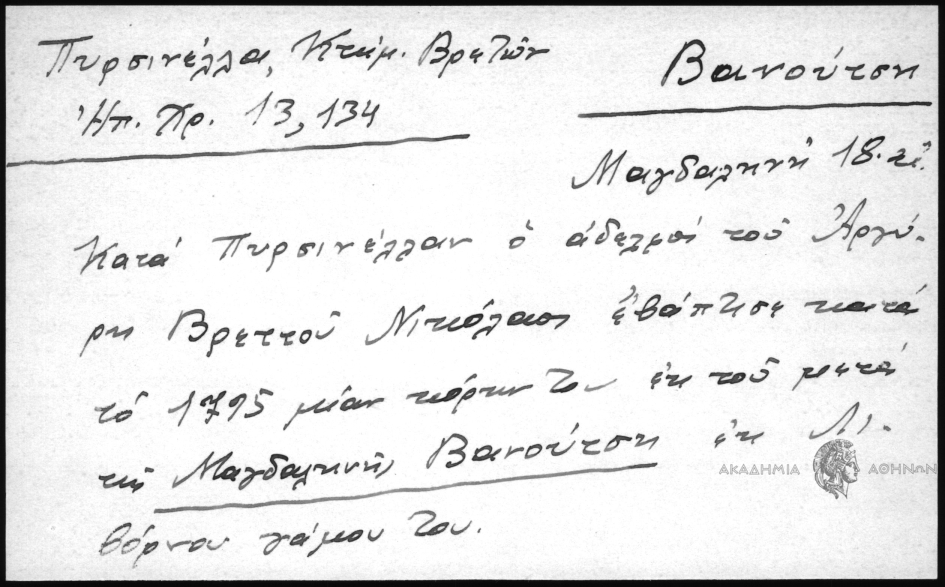 Πυρσινέλλα, Κτημ. Βρετῶν
Βανούτση
Ἠπ. Χρ. 13, 134
Μαγδαληνή 18. αἰ.
Κατά Πυρσινέλλαν ὁ ἀδελφός τοῦ Ἀργύ-
ρη Βρεττοῦ Νικόλαος ἐβάπτισε κατά
τό 1795 μίαν κόρην του ἐκ τοῦ μετά
τῆς Μαγδαληνῆς Βανούτση ἐκ Λι-
βόρνου γάμου του.
ΑΚΑΔΗΜΙΑ ΑΘΗΝΩΝ